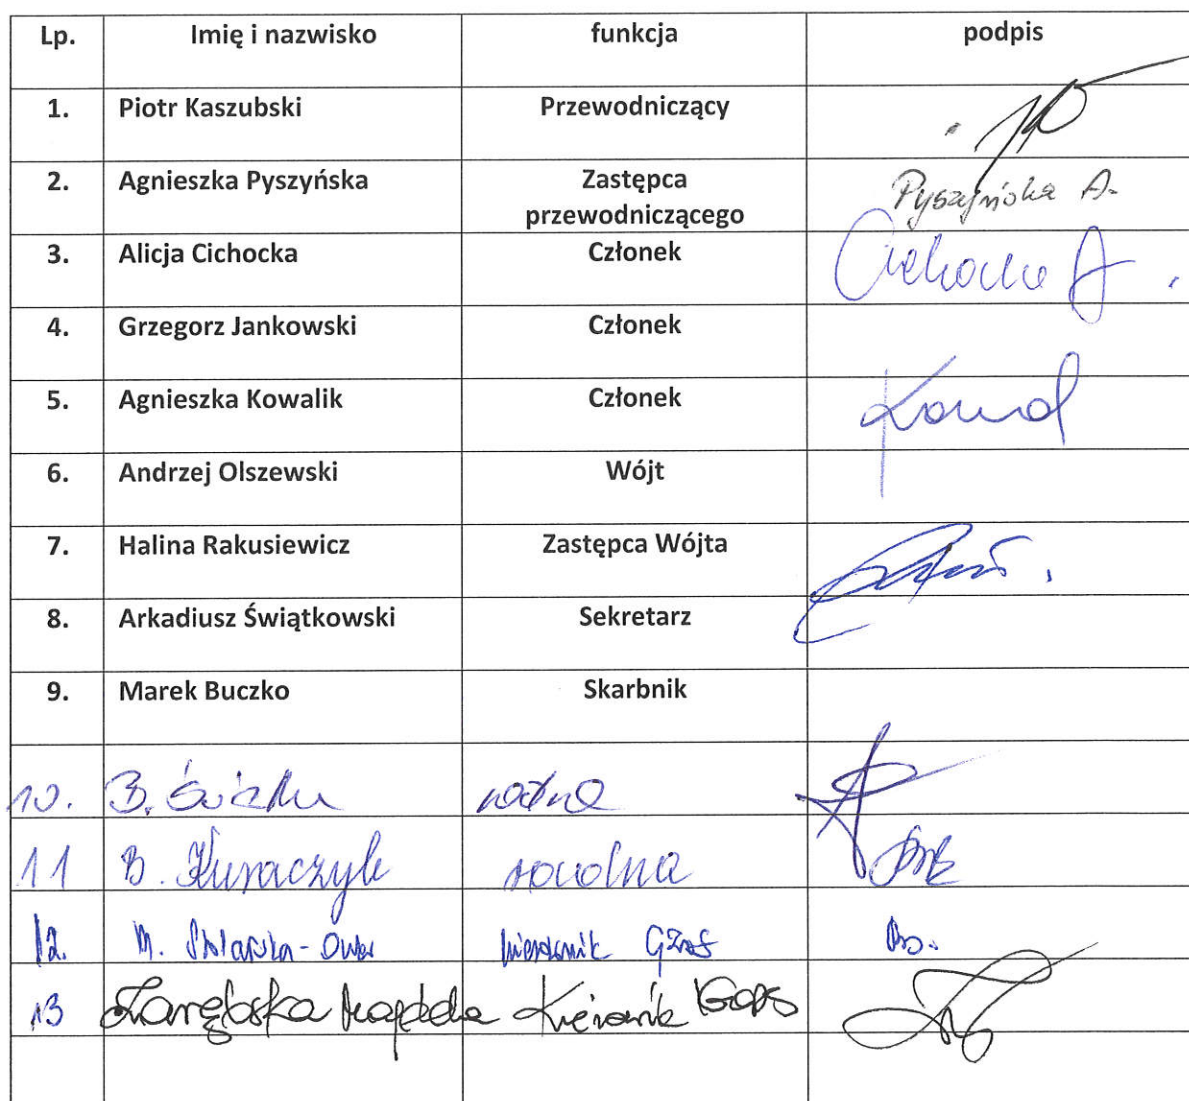 Lp. Imię i nazwisko funkcja podpis
1. Piotr Kaszubski Przewodniczący
2. Agnieszka Pyszyńska Zastępca przewodniczącego Pyszyńska A.
3. Alicja Cichocka Członek Cichocka A.
4. Grzegorz Jankowski Członek
5. Agnieszka Kowalik Członek
6. Andrzej Olszewski Wójt
7. Halina Rakusiewicz Zastępca Wójta
8. Arkadiusz Świątkowski Sekretarz
9. Marek Buczko Skarbnik
10. B. radna
11 B. Kuraczyk radna
12. M. kierownik
13 Zarębska Magdalena Kierownik GOPS